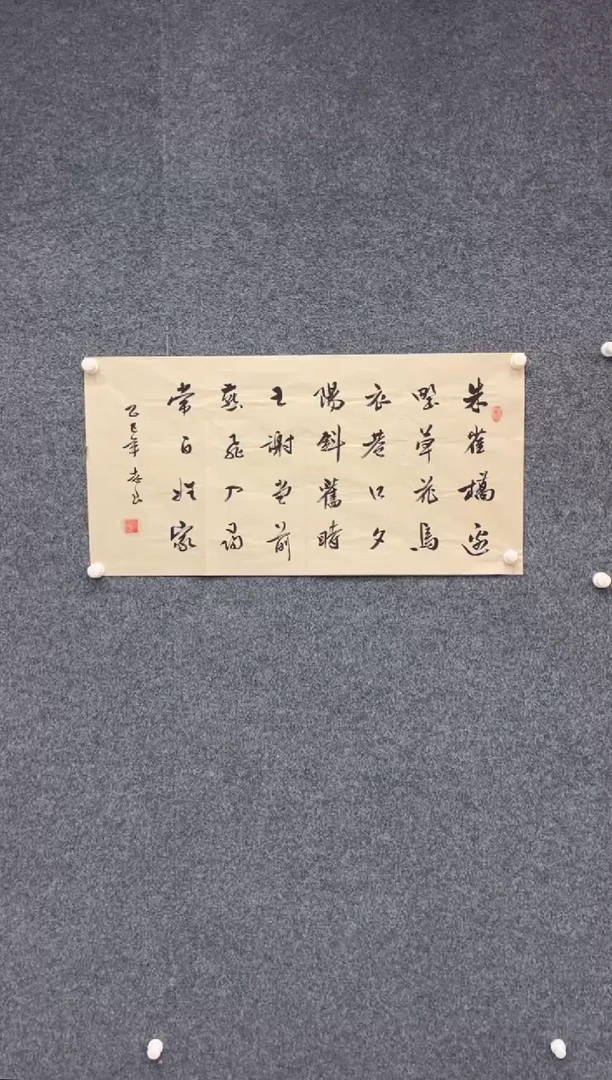 朱雀橋邊
野草花烏
衣巷口夕
陽斜舊時
王謝堂前
燕飛入尋
常百姓家
乙巳年